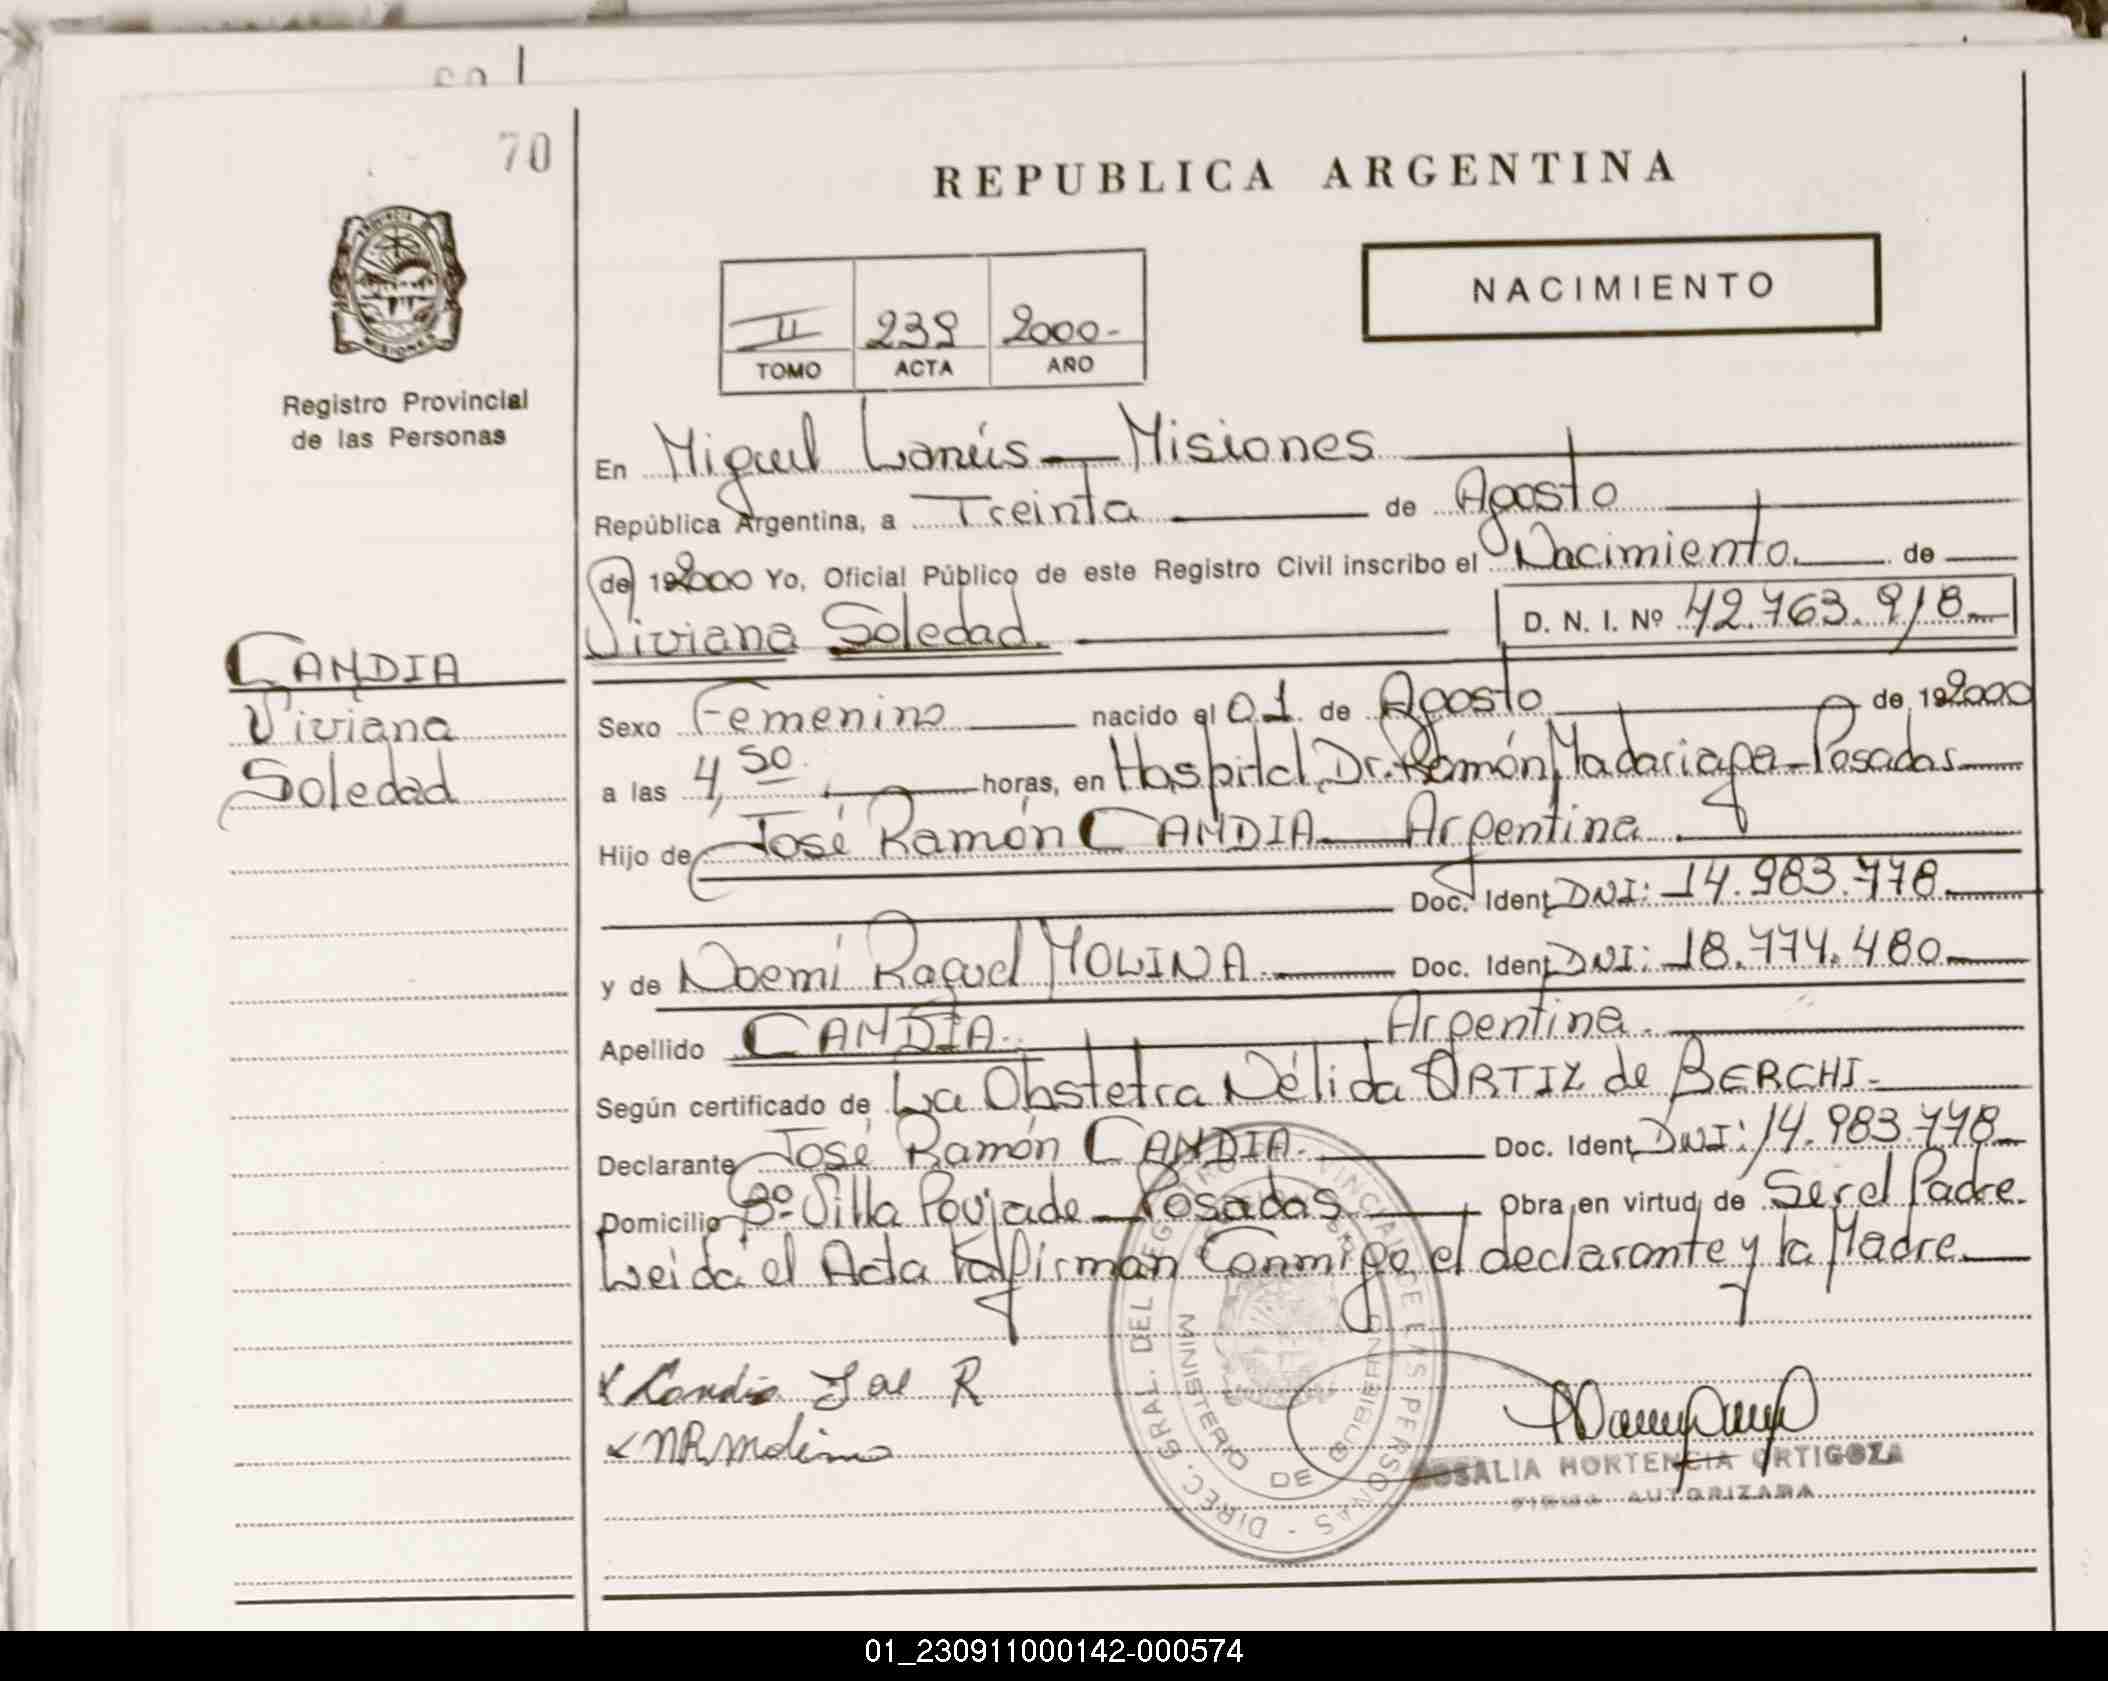 70
REPUBLICA ARGENTINA
NACIMIENTO
II 239 2000-
TOMO ACTA AÑO
PROVINCIA
MISIONES
Registro Provincial
de las Personas
En Miguel Lanús - Misiones
República Argentina, a Treinta de Agosto
de 192000 Yo, Oficial Público de este Registro Civil inscribo el Nacimiento de
Viviana Soledad. D. N. I. Nº 42.763.918.-
CANDIA
Viviana
Soledad
Sexo Femenino nacido el 01 de Agosto de 192000
a las 4,50 horas, en Hospital Dr. Ramón Madariaga - Posadas
Hijo de José Ramón CANDIA - Argentina
Doc. Ident. DNI: 14.983.778.
y de Noemí Raquel MOLINA Doc. Ident. DNI: 18.774.480
Apellido CANDIA. Argentina.
Según certificado de La Obstetra Nélida ORTIZ de BERCHI-
Declarante José Ramón CANDIA. Doc. Ident. DNI: 14.983.778
Domicilio Bº Villa Poujade - Posadas Obra en virtud de Ser el Padre.
Leida el Acta la firman Conmigo el declarante y la Madre.
Candia José R
NR Molina
DIREC. GRAL. DEL REGISTRO PROVINCIAL DE LAS PERSONAS -
MINISTERIO DE GOBIERNO
ROSALIA HORTENCIA ORTIGOZA
FIRMA AUTORIZADA
01_230911000142-000574